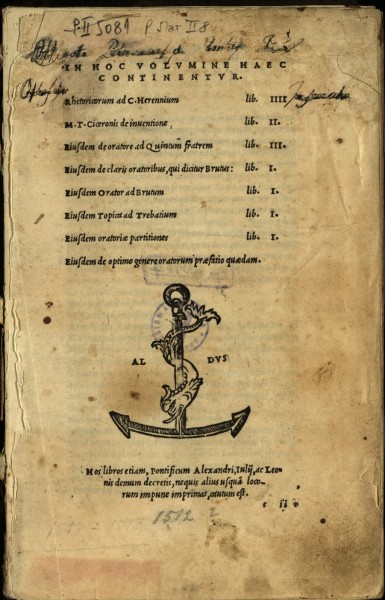 P II 5081 P Star II 8
IN HOC VOLVMINE HAEC
CONTINENTVR.
Rhetoricorum ad C. Herennium lib. IIII
M. T. Ciceronis de inuentione lib. II.
Eiusdem de oratore ad Quintum fratrem lib. III.
Eiusdem de claris oratoribus, qui dicitur Brutus: lib. I.
Eiusdem Orator ad Brutum lib. I.
Eiusdem Topica ad Trebatium lib. I.
Eiusdem oratoriæ partitiones lib. I.
Eiusdem de optimo genere oratorum præfatio quædam.
AL DVS
Hos libros etiam, Pontificum Alexandri, Iulij, ac Leo=
nis demum decretis, nequis alius usquā loco=
rum impune imprimat, cautum est.
1512 ?